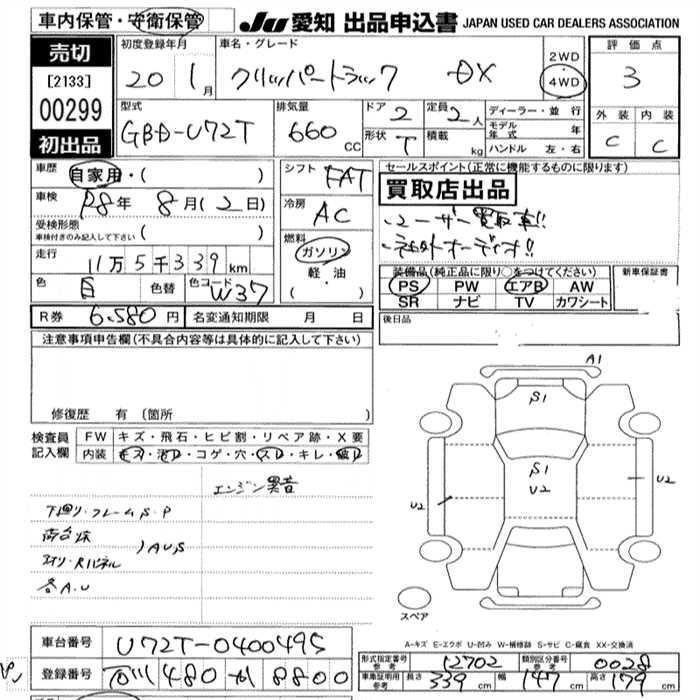 車内保管・守衛保管
JU 愛知 出品申込書 JAPAN USED CAR DEALERS ASSOCIATION
売切
[2133]
00299
初出品
初度登録年月
20 1月
車名・グレード
クリッパートラック DX
2WD
・
4WD
評価点
3
外装 内装
C C
型式
GBD-U72T
排気量
660 CC
ドア 2
形状 T
定員 2人
積載 kg
ディーラー・並行
モデル年式 年
ハンドル 左・右
車歴
自家用・( )
車検
R8年 8月(2日)
受検形態
車検付きのみ記入して下さい ( )
走行
11万5千339km
色 白 色替 色コード W37
シフト FAT
冷房 AC
燃料
ガソリン
軽・油
・( )
セールスポイント(正常に機能するものに限ります)
買取店出品
・ユーザー買取車!!
・社外オーディオ!!
装備品(純正品に限り○をつけてください)
PS PW エアB AW
SR ナビ TV カワシート
新車保証書
後日品
R券 6.580円 名変通知期限 月 日
注意事項申告欄(不具合内容等は具体的に記入して下さい)
修復歴 有 (箇所 )
検査員記入欄
FW キズ・飛石・ヒビ割・リペア跡・X要
内装 キズ・汚レ・コゲ・穴・スレ・キレ・破レ
エンジン異音
下廻り・フレームS.P
荷台床
アオリ・Rパネル
)AUS
各A.U
A1
S1
S1
U2
U2
U2
スペア
A-キズ E-エクボ U-凹み W-補修跡 S-サビ C-腐食 XX-交換済
車台番号 U72T-0400495
登録番号 石川 480 か 8800
形式指定番号 参考 12702 類別区分番号 参考 0028
車庫証明用 参考 長さ 339cm 幅 147cm 高さ 179cm